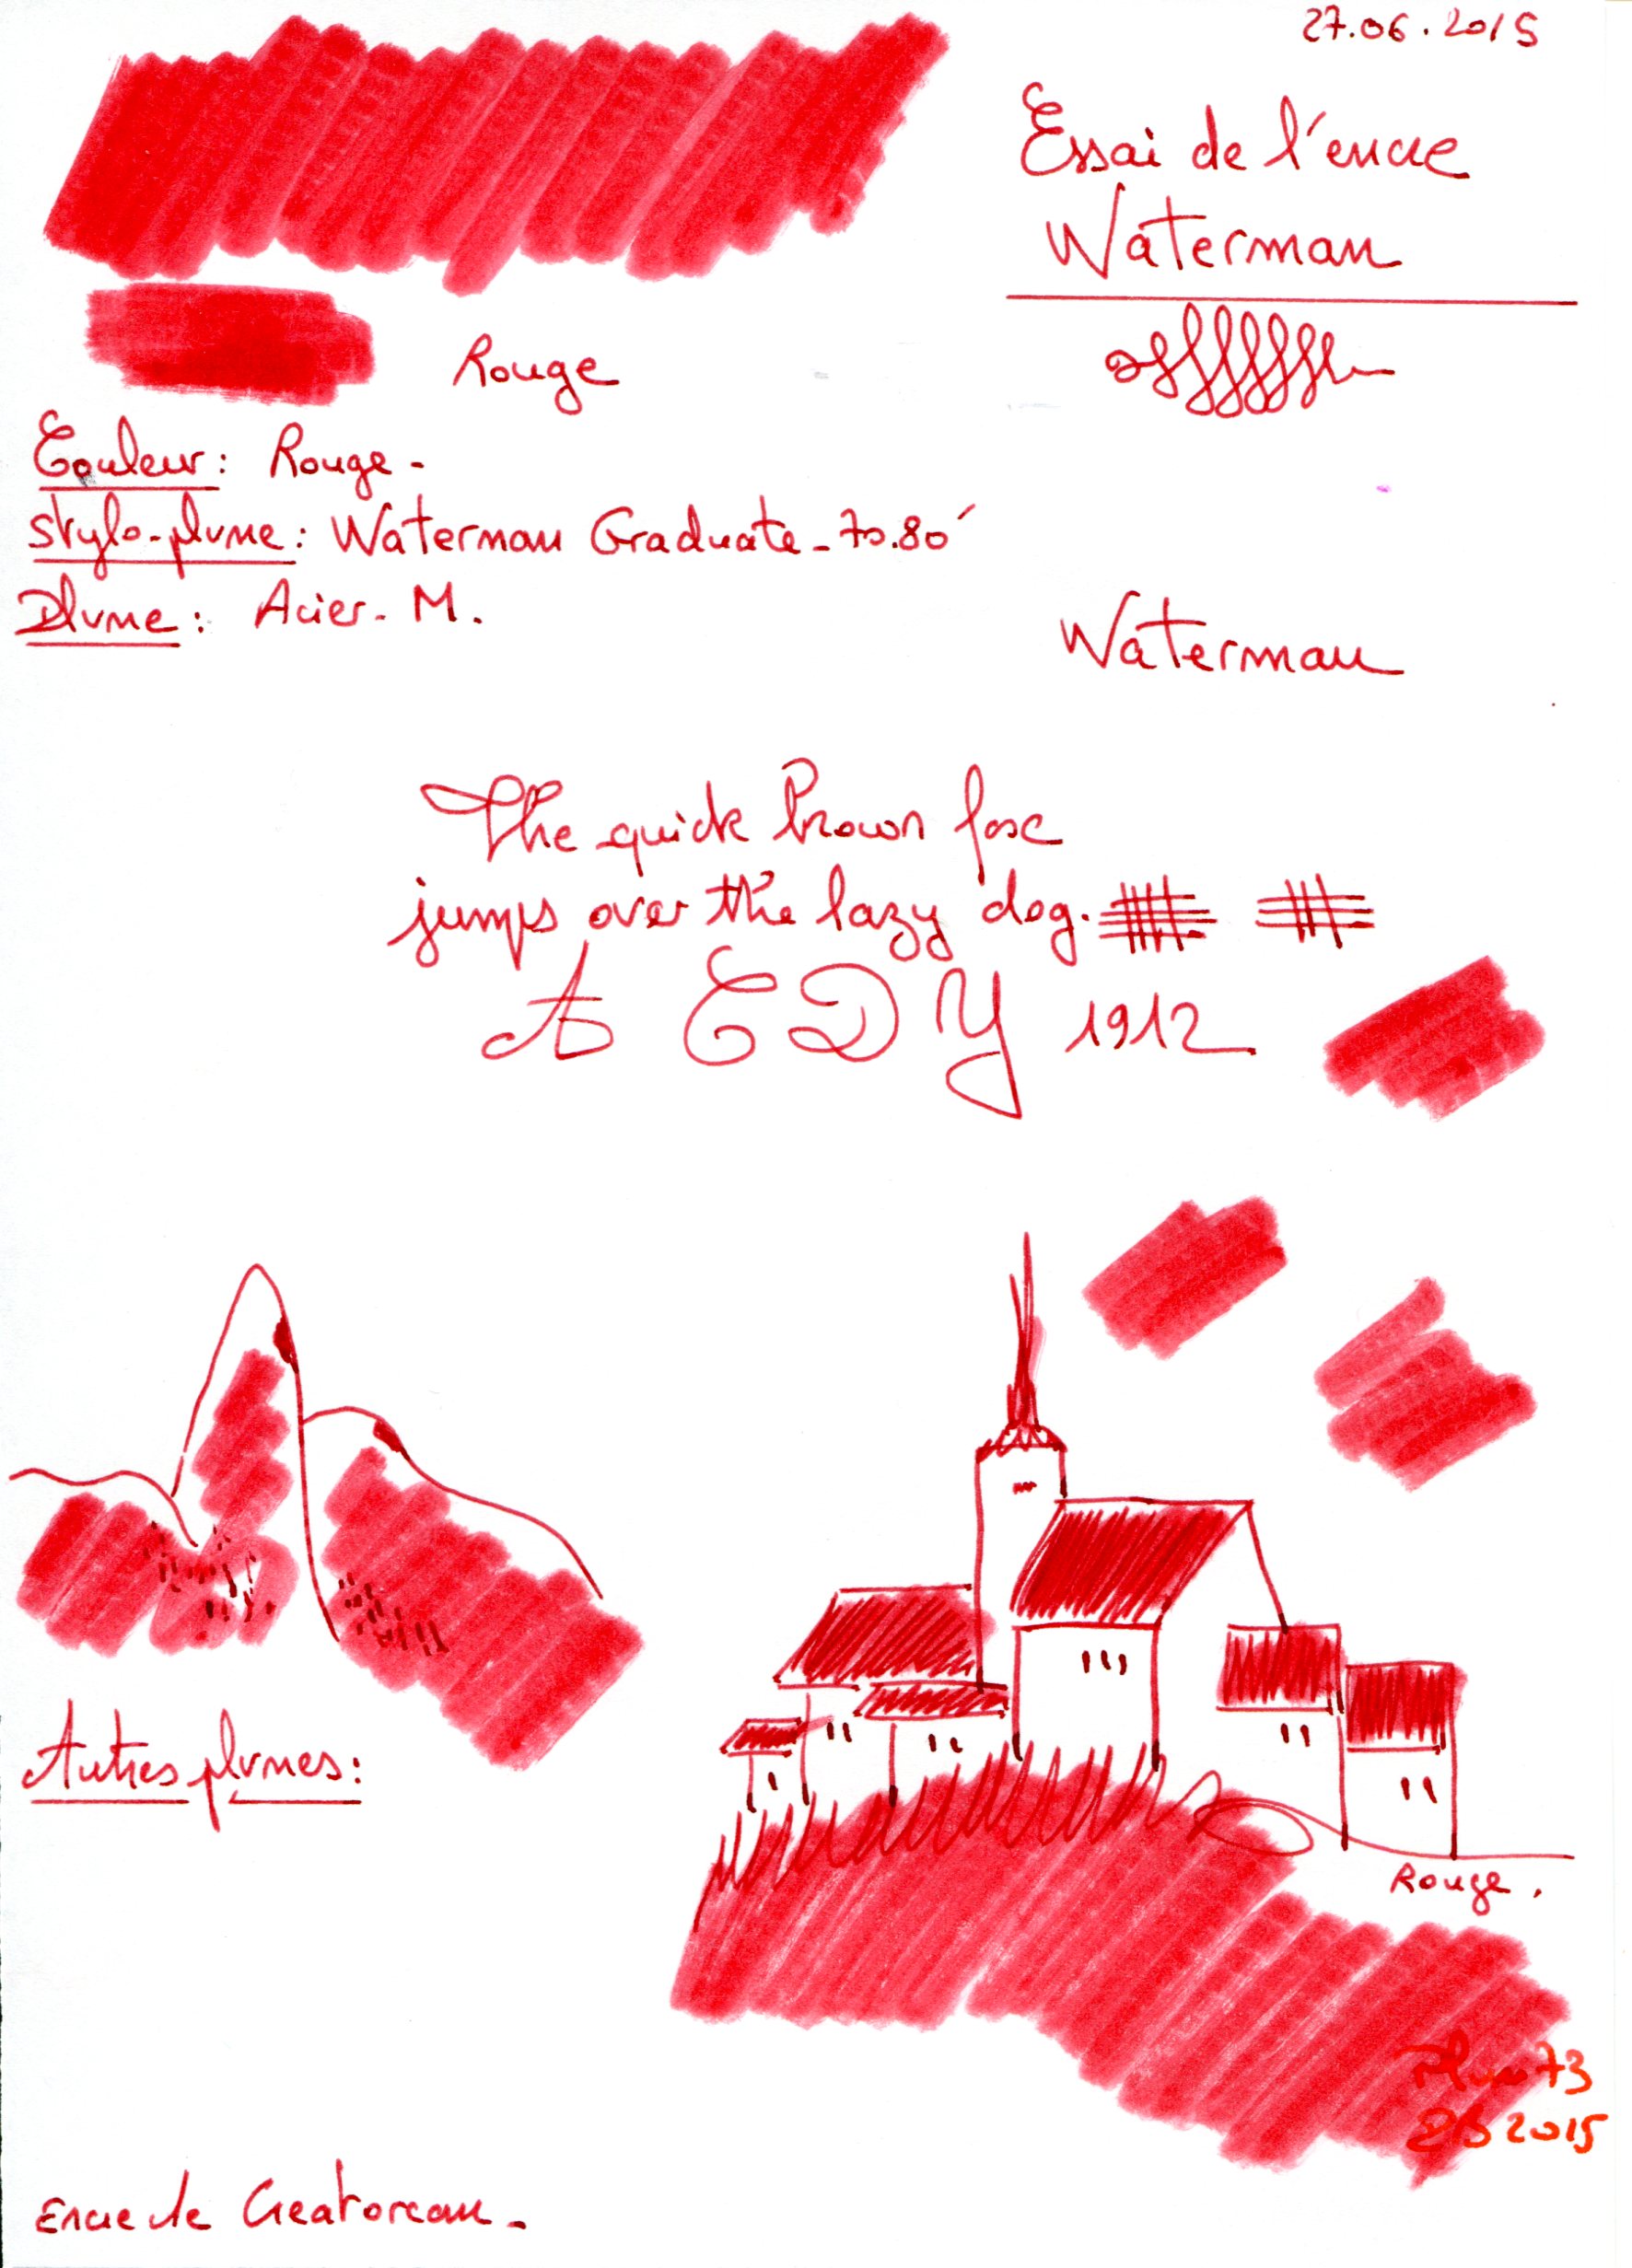 27.06.2015
Essai de l'encre
Waterman
Rouge
Couleur: Rouge-
Stylo-plume: Waterman Graduate-70.80'
Plume: Acier-M.
Waterman
The quick brown fox
jumps over the lazy dog.
A E D Y 1912
Autres plumes:
Rouge.
Plume73
2015
Encre de